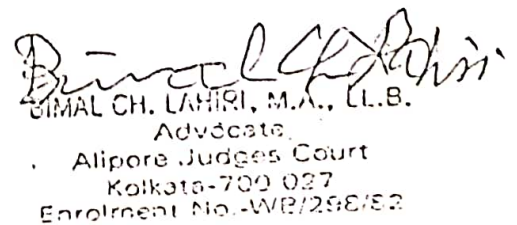 Bimal Ch. Lahiri
BIMAL CH. LAHIRI, M.A., LL.B.
Advocate
Alipore Judges Court
Kolkata-700 027
Enrolment No.-WB/298/82